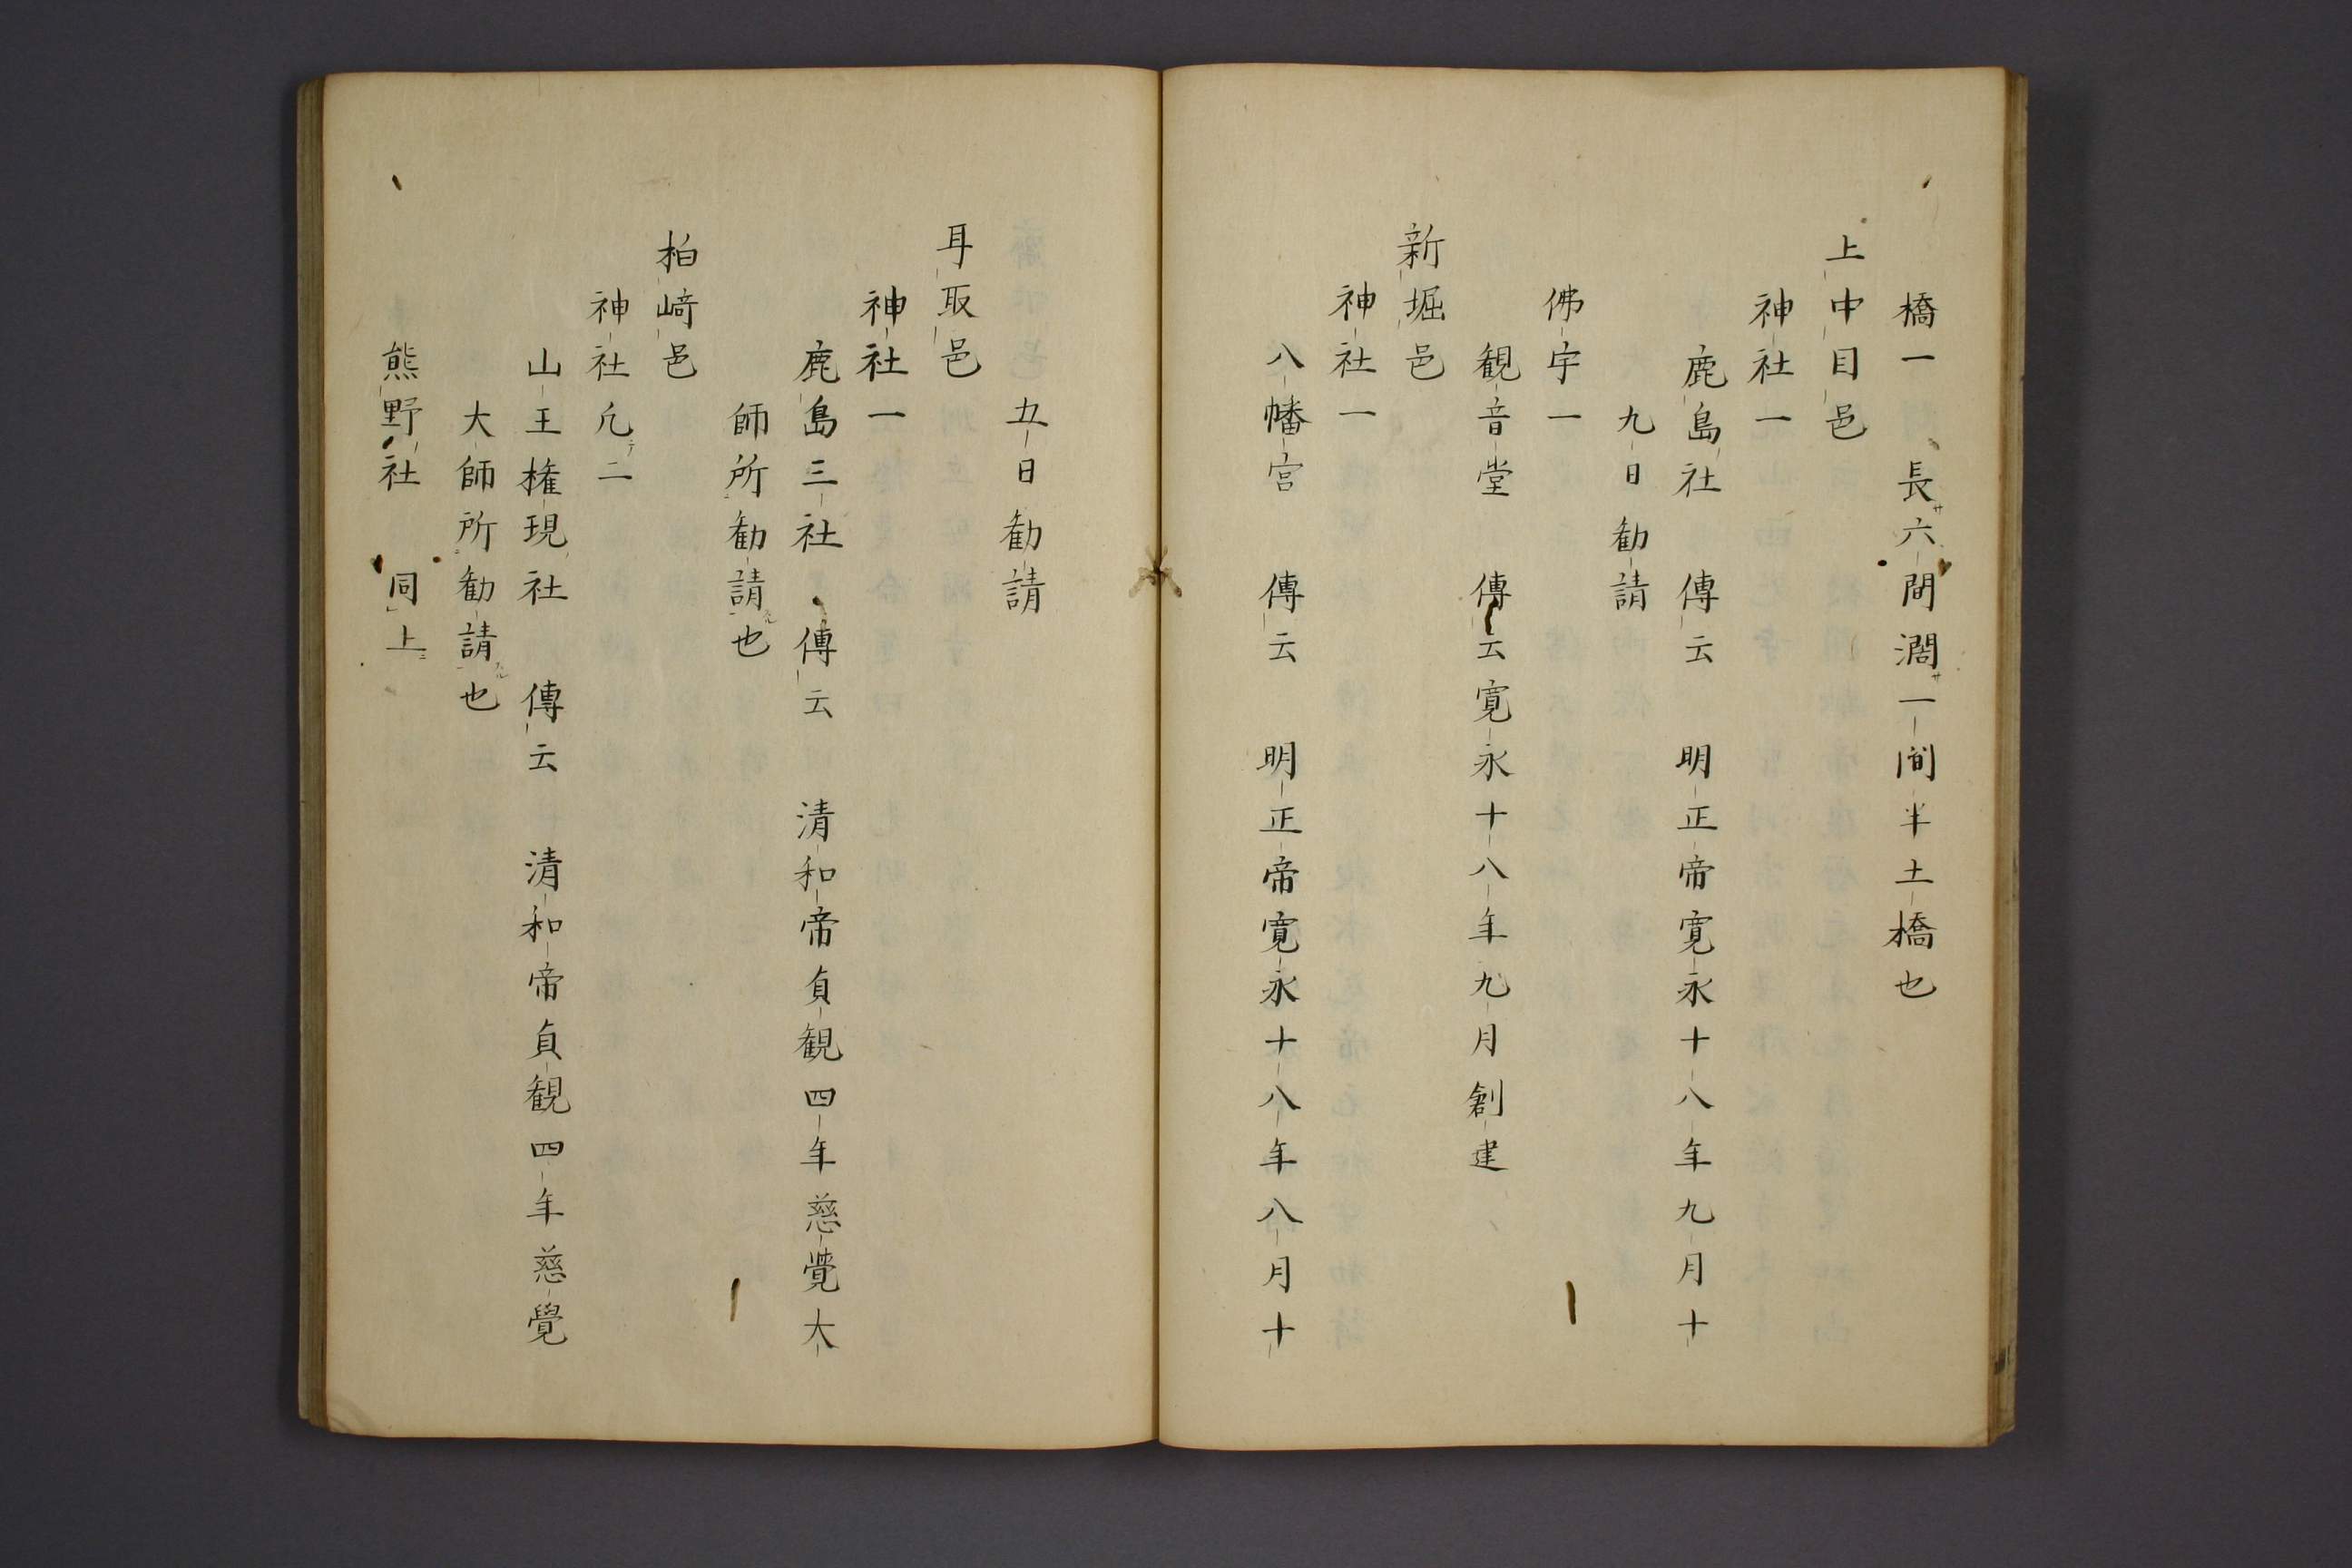 橋一　長サ六間濶サ一間半土橋也
上中目邑
神社一
鹿島社　傳云　明正帝寛永十八年九月十
九日勧請
佛宇一
観音堂　傳云寛永十八年九月創建
新堀邑
神社一
八幡宮　傳云　明正帝寛永十八年八月十
五日勧請
耳取邑
神社一
鹿島三社　傳云　清和帝貞観四年慈覺大
師所勧請也
柏﨑邑
神社凢テ二
山王権現社　傳云　清和帝貞観四年慈覺
大師所勧請也
熊野社　同上